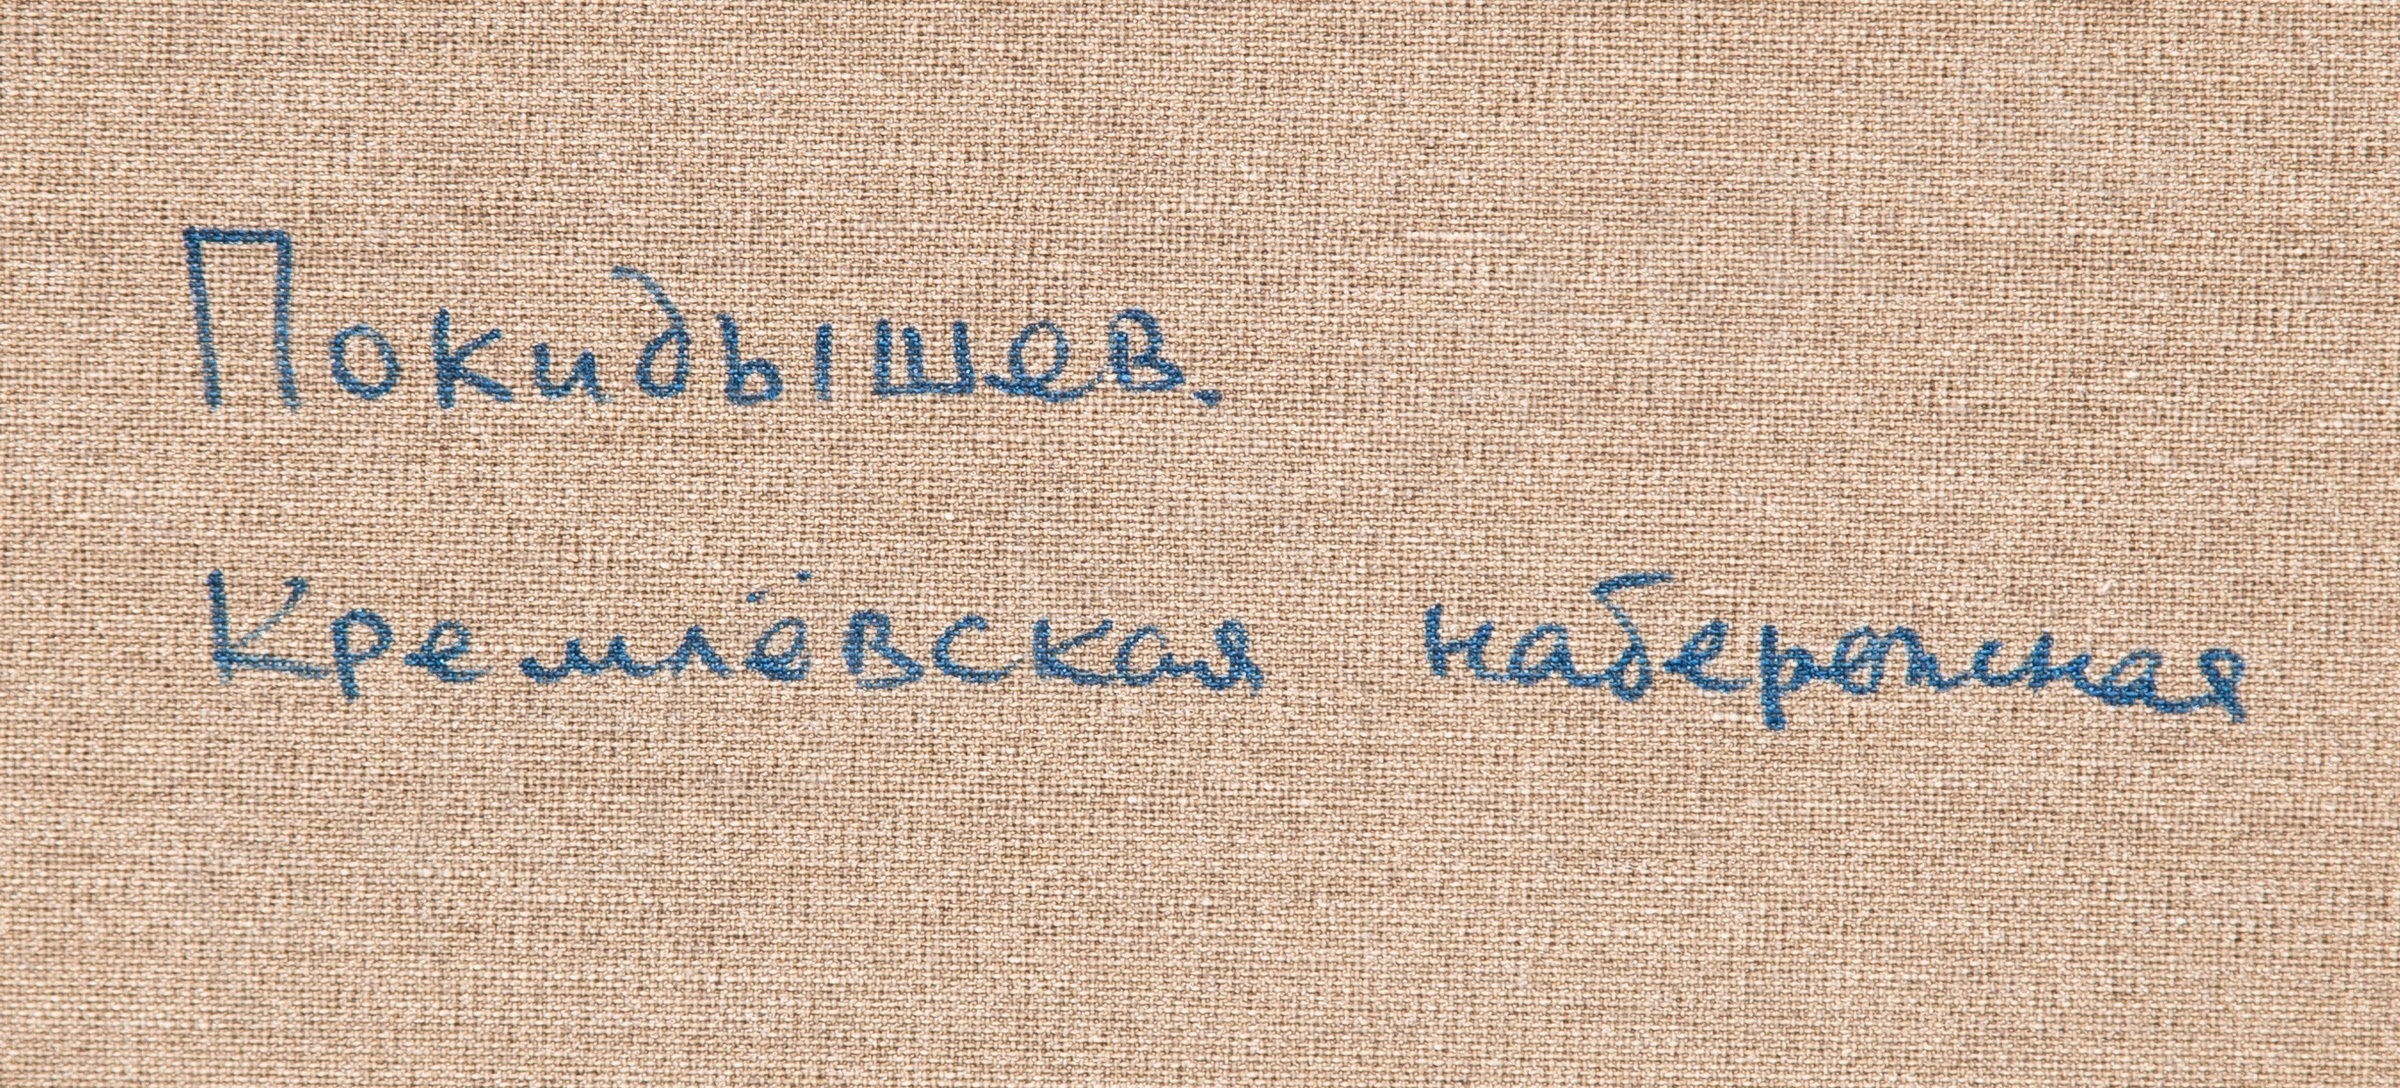 Покидышев.
Кремлёвская набережная